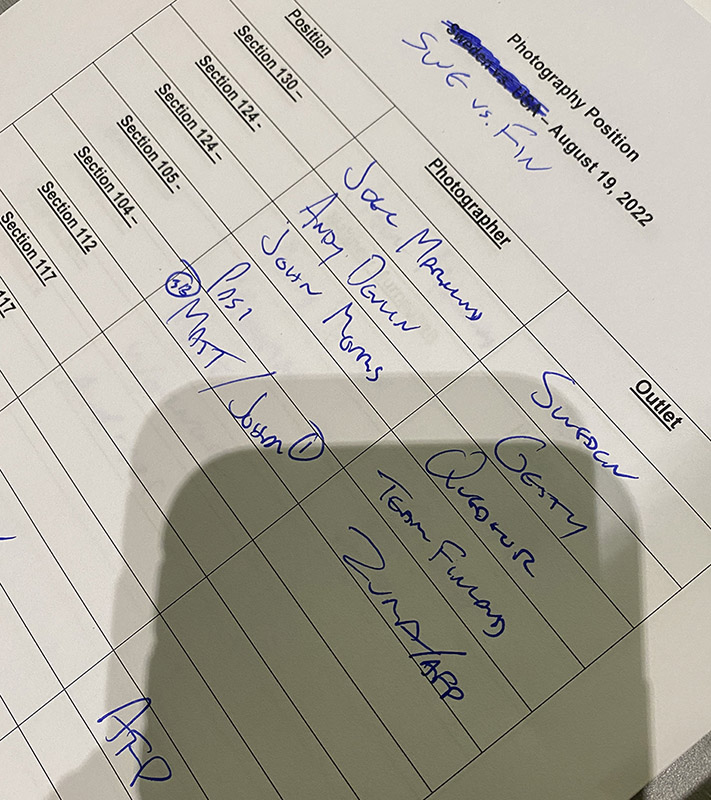 Photography Position
– August 19, 2022
SWE vs. FIN
Position Photographer Outlet
Section 130 – JOEL MARKLUND SWEDEN
Section 124 - ANDY DEVLIN GETTY
Section 124 - JOHN MORRIS
Section 105 - PASI TEAM FINLAND
Section 104 – MATT / JOHN 1 ZUMA/AFP
Section 112
Section 117
117